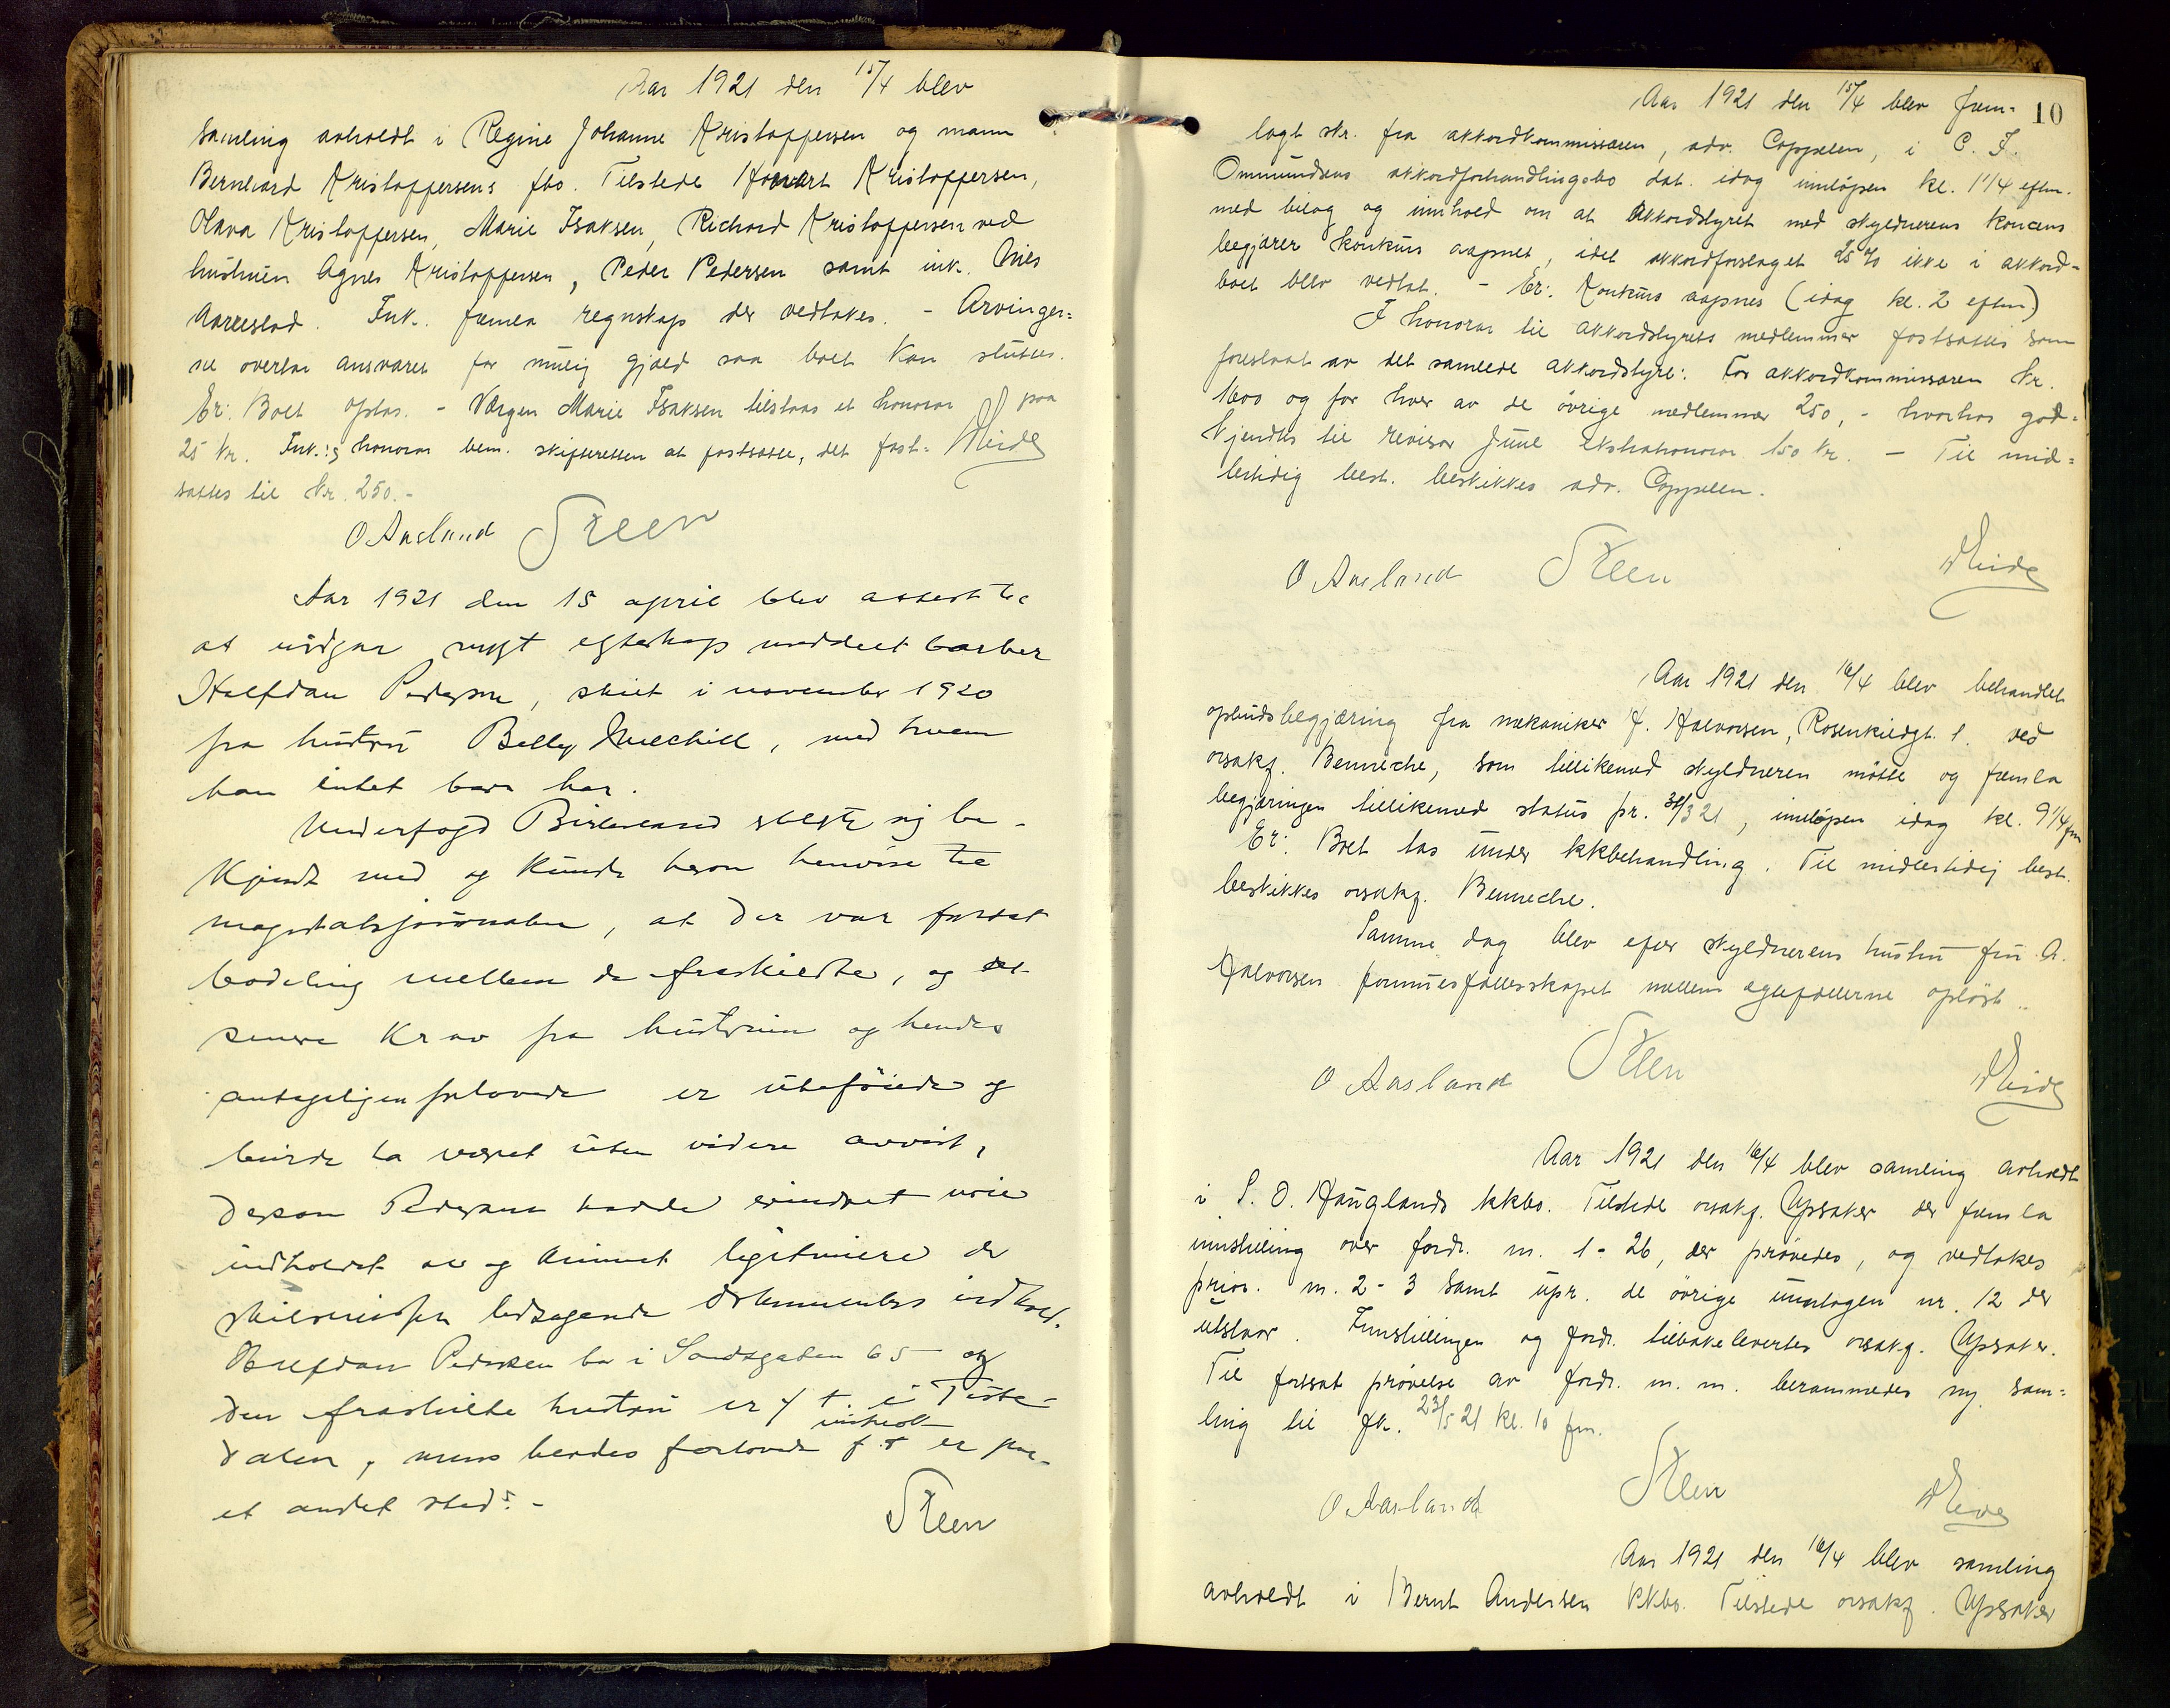 Aar 1921 den 15/4 blev
samling avholdt i Regine Johanne Kristoffersen og mann
Bernhard Kristoffersens fbo. Tilstede Kristoffersen,
Olava Kristoffersen, Marie Isaksen, Richard Kristoffersen ved
hustruen Agnes Kristoffersen, Peder Pedersen samt ink. Nils
Aarrestad. Ink. fremla regnskap der vedtokes. - Arvinger=
ne overtar ansvaret for mulig gjæld saa boet kan sluttes.
Er: Boet optas. - Værgen Marie Isaksen tilstaas et honorar paa
25 kr. Ink.'s honorar bem. skifteretten at fastsætte, det fast=
sattes til kr. 250.-
O Aasland Steen Meide
Aar 1921 den 15 april blev attest til
at indgaa nygt egteskap meddelt barber
Halfdan Pedersen, skilt i november 1920
fra hustru Betty Mitchill, med hvem
han intet barn har.
Underfogd Birkeland gjorde sig be-
kjendt med og kunde herom henvise til
magistratsjournalen, at der var foretat
bodeling mellem de fraskilte, og
senere krav fra hustruen og hendes
antageligen forlovede er uteføiede og
burde ha været uten videre avvist,
dersom Pedersen hadde erindret noie
indholdet av og kunnet legitimere de
skilsmissen ledsagende dokumenters indhold.
Halfdan Pedersen bor i Sandsgaten 65 og
den fraskilte hustru er f. t. i Tiste-
dalen, mens hendes forlovede f. t. er paa
et andet sted. -
Steen
10
Aar 1921 den 15/4 blev frem=
lagt skr. fra akkordkommissæren, adv. Coppelen, i C. F.
Ommundsens akkordforhandlingsbo dat. idag innløpen kl. 1 1/4 eftm.
med bilag og innhold om at akkordstyret med skyldnerens koncens
begjærer konkurs aapnet, idet akkordforslaget 25 % ikke i akkord=
boet blev vedtat. - Er: Konkurs aapnes (idag kl. 2 eftm)
I honorar til akkordstyrets medlemmer fastsattes som
foreslaat av det samlede akkordstyre: For akkordkommissæren kr.
1600 og for hver av de øvrige medlemmer 250,- hvorhos god=
kjendtes til revisor Juul ekstrahonorar 150 kr. - Til mid=
lertidig best. beskikkes adv. Coppelen.
O Aasland Steen Meide
Aar 1921 den 16/4 blev behandlet
opbudsbegjæring fra mekaniker H. Halvorsen, Rosenkildgt. 1. ved
orsakf. Benneche, som tillikemed skyldneren møtte og fremla
begjæringen tillikemed status pr. 31/3 21, innløpen idag kl. 9 1/4 fm
Er: Boet tas under kkbehandling. Til midlertidig best.
beskikkes orsakf. Benneche.
Samme dag blev efter skyldnerens hustru fru A.
Halvorsen formuesfællesskapet mellem egtefællerne opløst.
O Aasland Steen Meide
Aar 1921 den 16/4 blev samling avholdt
i S. O. Hauglands kkbo. Tilstede orsakf. Opsaker der fremla
innstilling over fordr. nr. 1-26, der prøvedes, og vedtokes
prior. nr. 2-3 samt upr. de øvrige unntagen nr. 12 der
utstaar. Innstillingen og fordr. tilbakeleverte orsakf. Opsaker.
Til fortsat prøvelse av fordr. m. m. berammedes ny sam=
ling til fk. 23/5 21 kl. 10 fm.
O Aasland Steen Meide
Aar 1921 den 16/4 blev samling
avholdt i Bernt Andersen kkbo. Tilstede orsakf. Opsaker